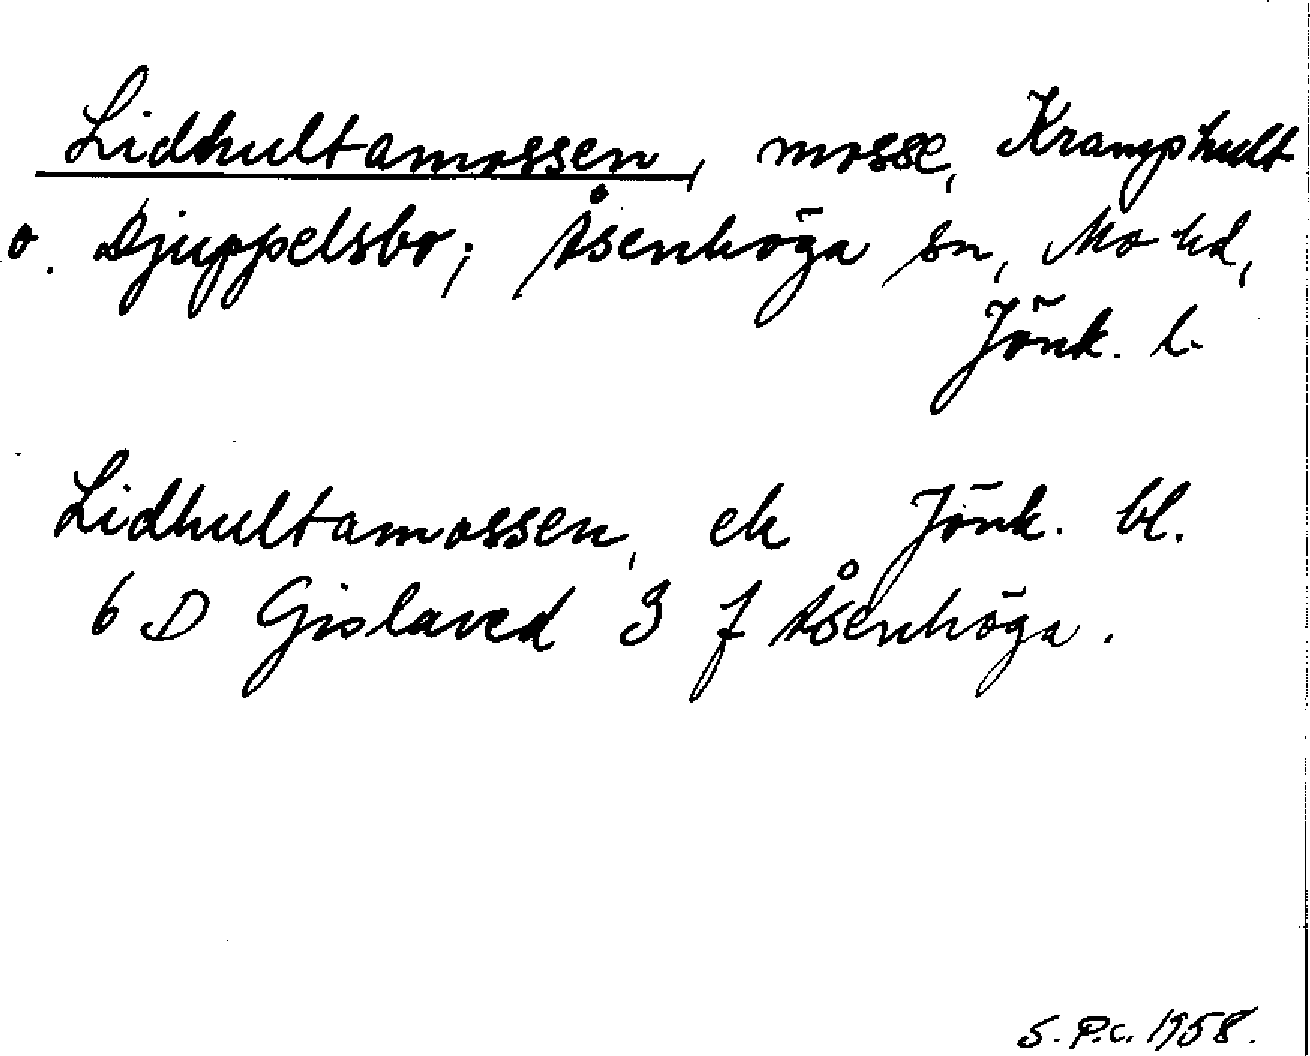 Lidhultamossen, mosse, Kramphult
o. Djuppelsbo; Åsenhöga sn, Mo hd,
Jönk. l.
Lidhultamossen, ek Jönk. bl.
6 D Gislaved 3 f Åsenhöga.
S.P.c. 1958.